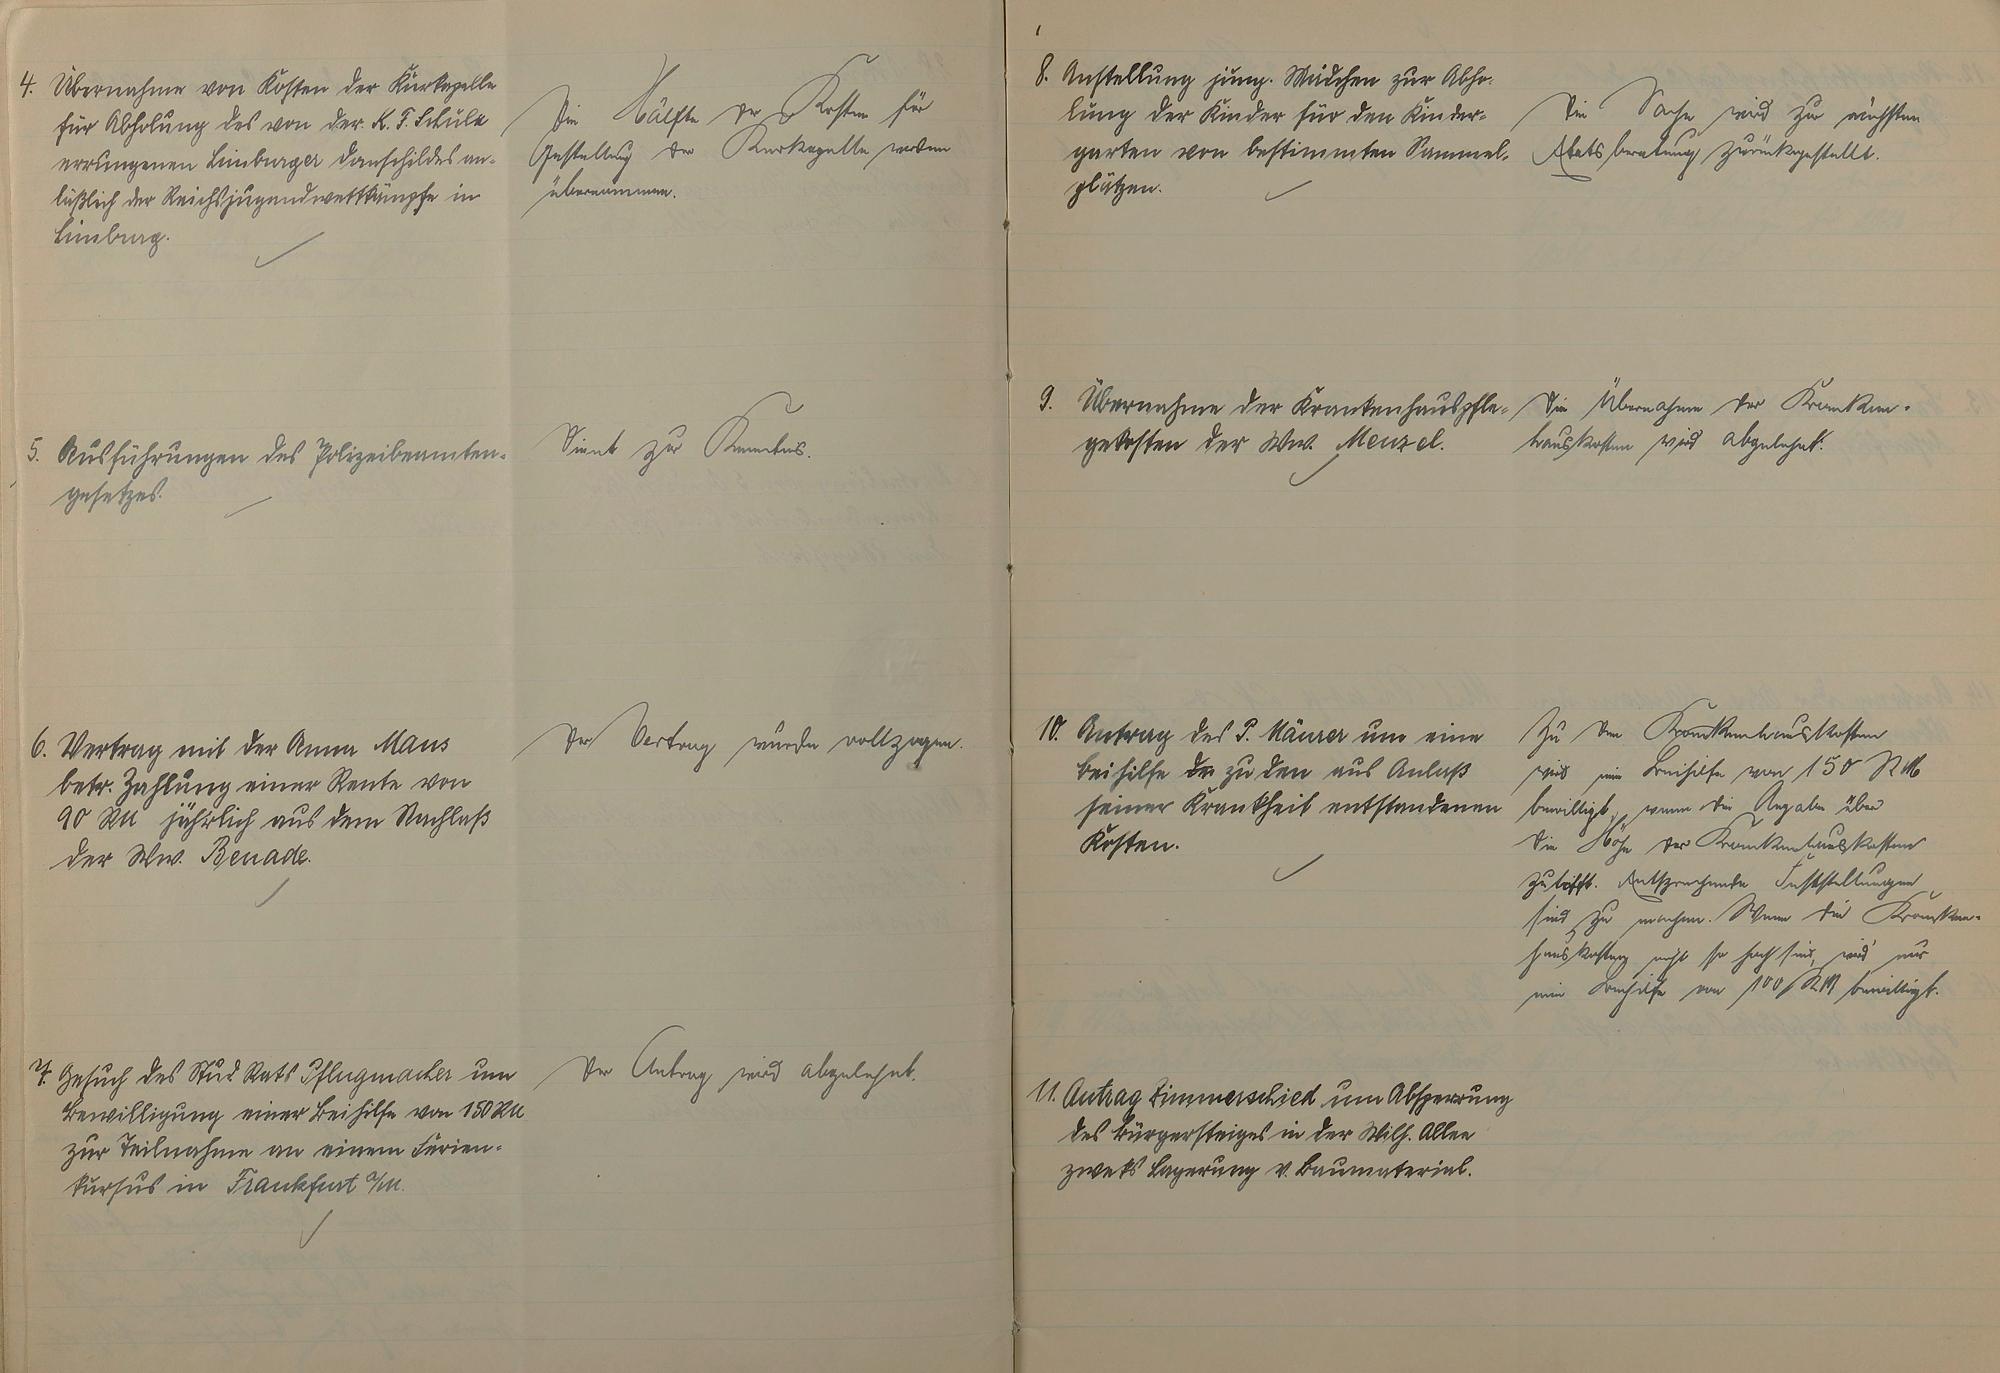 4. Übernahme von Kosten der Kurkapelle
für Abholung des von der K. F. Schule
errungenen Limburger Domschildes an-
läßlich der Reichsjugendwettkämpfe in
Limburg.
Die Hälfte der Kosten für
Gestellung der Kurkapelle werden
übernommen.
5. Ausführungen des Polizeibeamten-
gesetzes.
Dient zur Kenntnis.
6. Vertrag mit der Anna Maus
betr. Zahlung einer Rente von
90 RM jährlich aus dem Nachlaß
der Ww. Benade.
Der Vertrag wurde vollzogen.
7. Gesuch des Stud Rats Pflugmacher um
Bewilligung einer Beihilfe von 150 RM
zur Teilnahme an einem Ferien-
kursus in Frankfurt a/M.
Der Antrag wird abgelehnt.
8. Anstellung jung. Mädchen zur Abho-
lung der Kinder für den Kinder-
garten von bestimmten Sammel-
plätzen.
Die Sache wird zur nächsten
Etatsberatung zurückgestellt.
9. Übernahme der Krankenhauspfle-
gekosten der Ww. Menzel.
Die Übernahme der Kranken-
hauskosten wird abgelehnt.
10. Antrag des P. Mäurer um eine
Beihilfe zu den aus Anlaß
seiner Krankheit entstandenen
Kosten.
Zu den Krankenhauskosten
wird eine Beihilfe von 150 RM
bewilligt, wenn die Angabe über
die Höhe der Krankenhauskosten
zutrifft. Entsprechende Feststellungen
sind zu machen. Wenn die Kranken-
hauskosten nicht so hoch sind, wird nur
eine Beihilfe von 100 RM bewilligt.
11. Antrag Zimmerschied um Absperrung
des Bürgersteiges in der Wilh. Allee
zweks Lagerung v. Baumaterial.